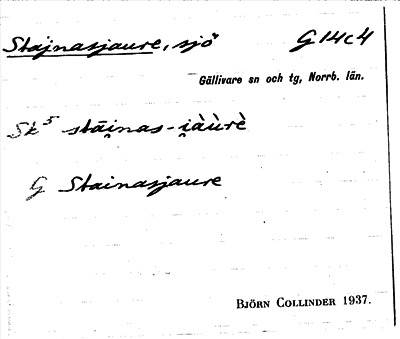 Stajnasjaure, sjö G 14c4
Gällivare sn och tg, Norrb. län.
Sk⁵ stāi̯nas-i̯àùrè
G Stainasjaure
BJÖRN COLLINDER 1937.